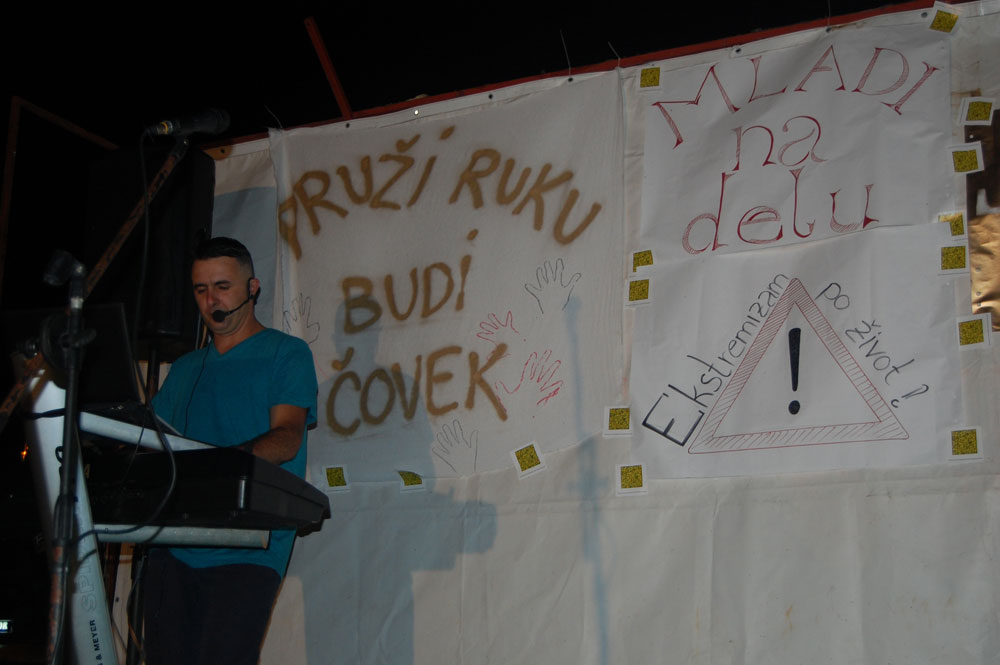 PRUŽI RUKU
BUDI
ČOVEK
MLADI
na
delu
Ekstremizam
po život?
!
& MEYER SP